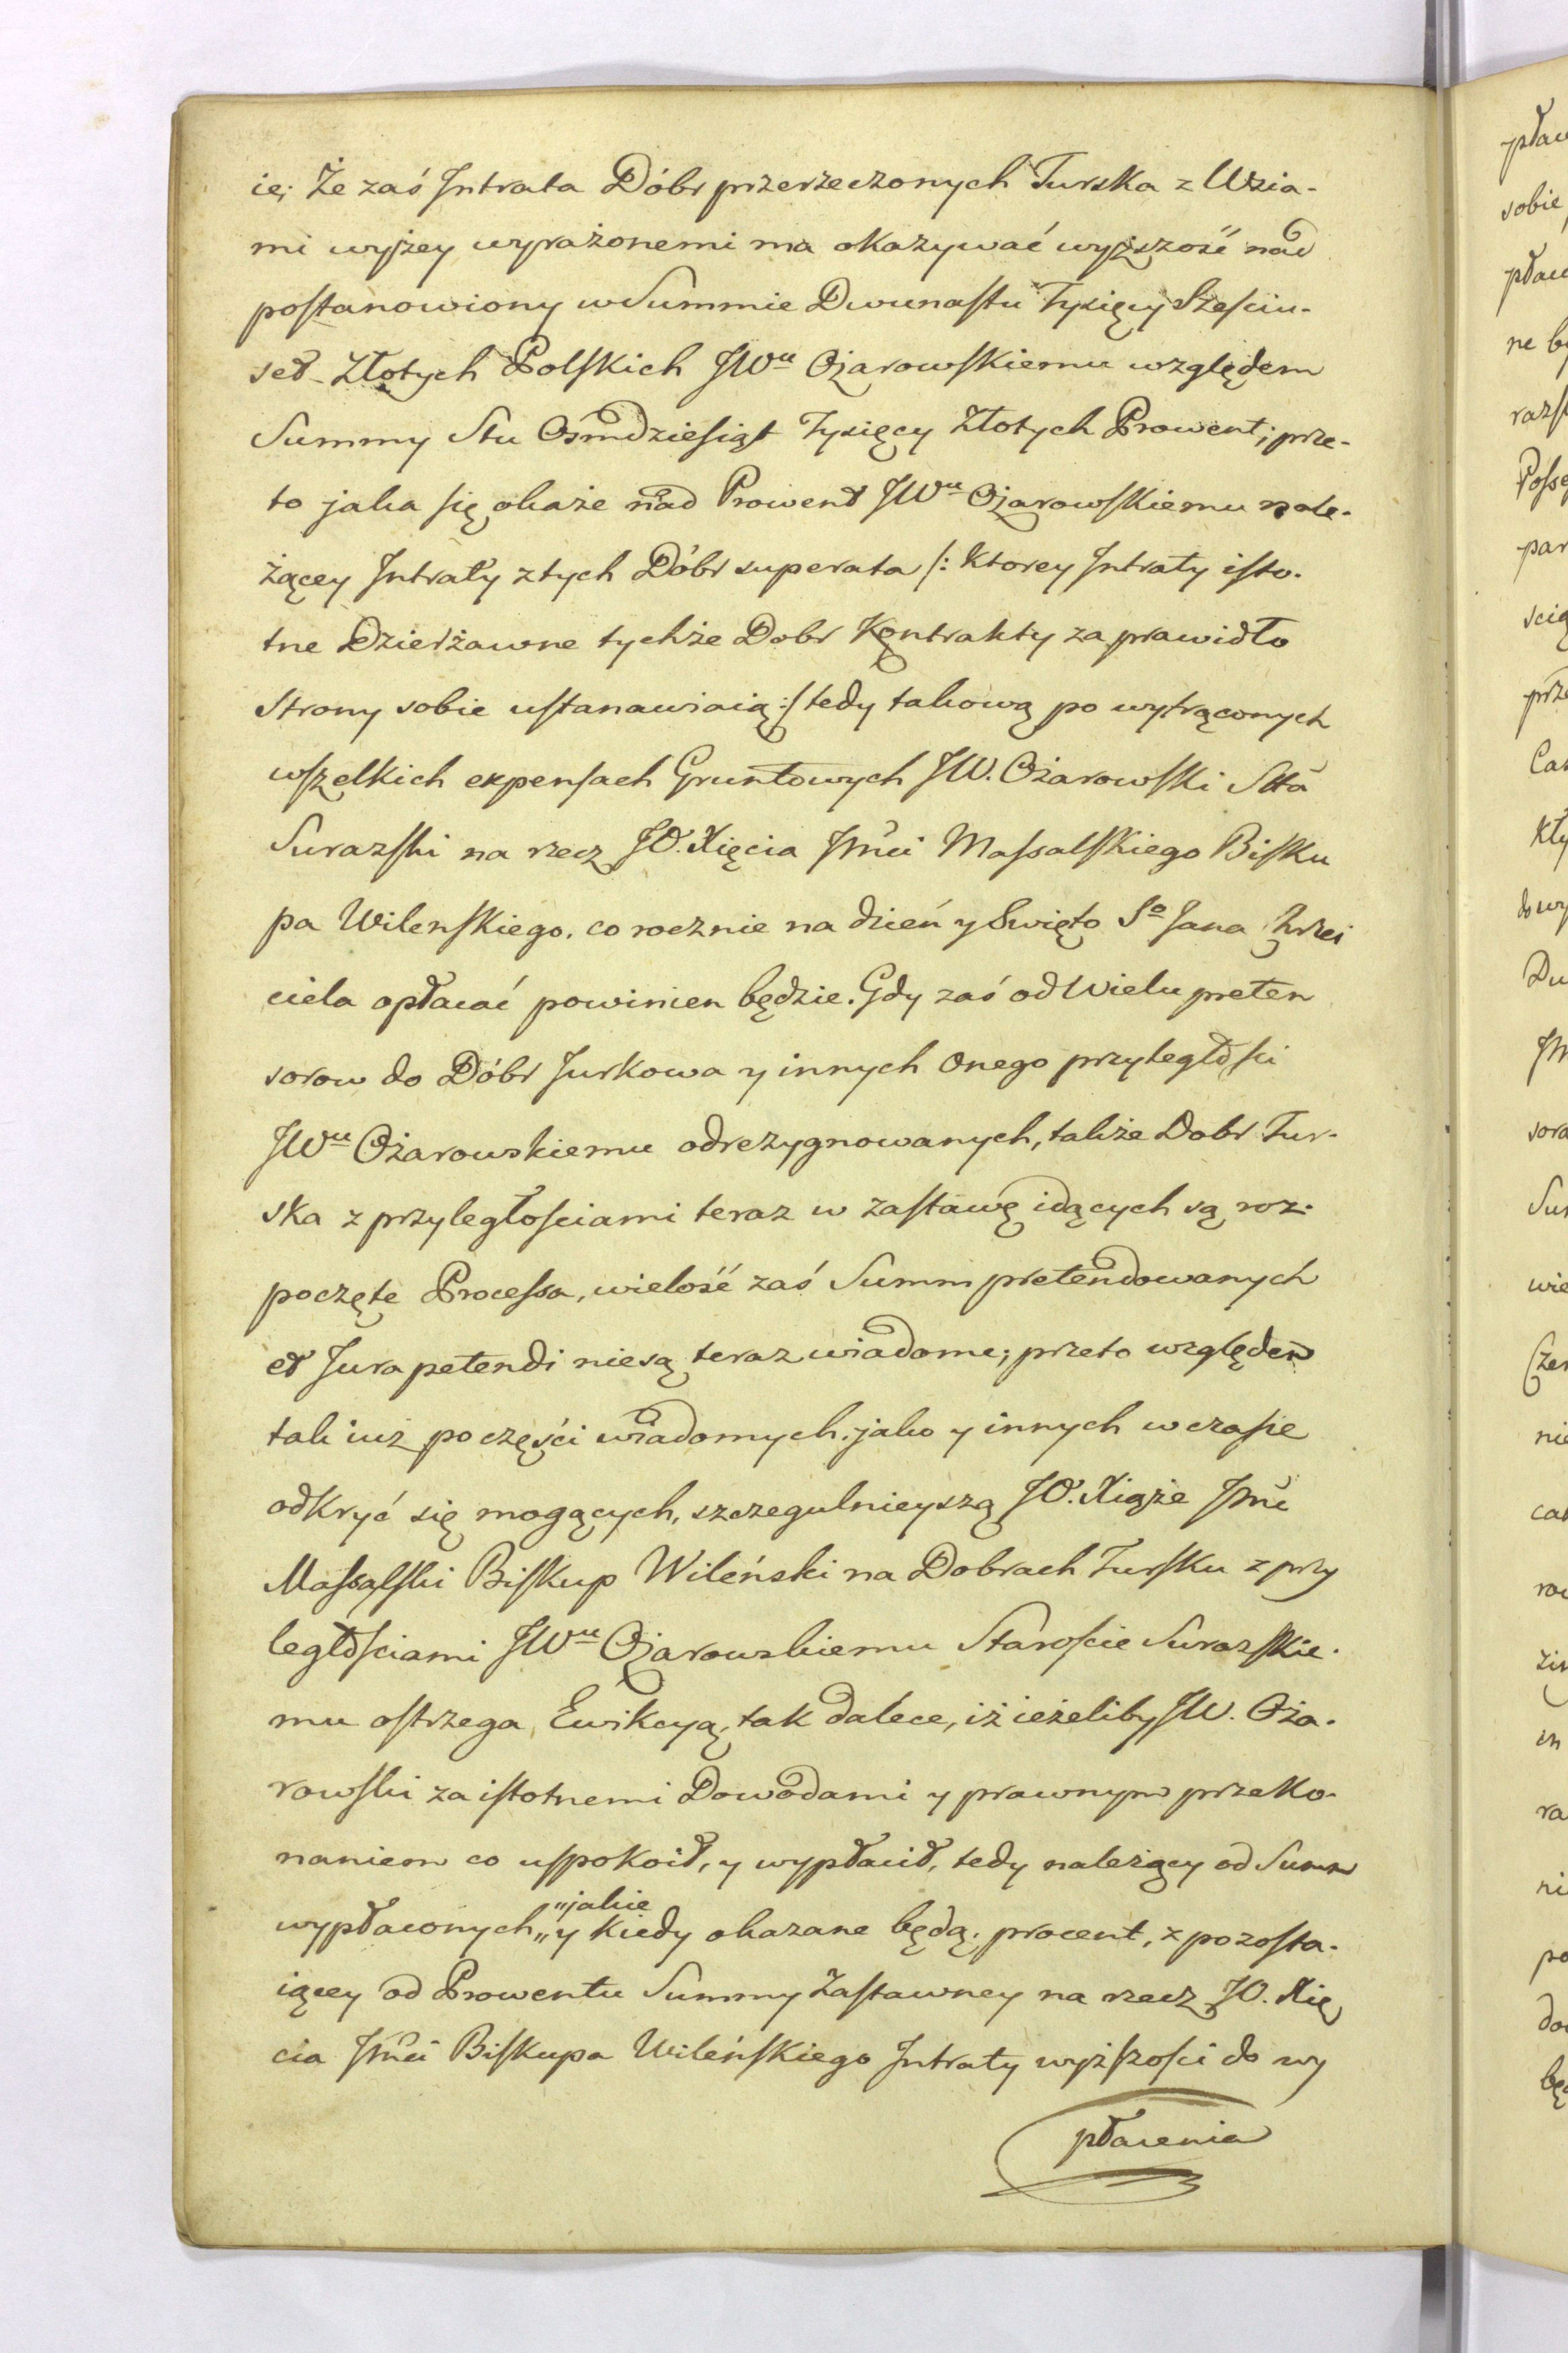 ie; Że zaś Intrata Dóbr przerzeczonych Turska z Wzia-
mi wyżey wyrażonemi ma okazywać wyższość nad
postanowiony w Summie Dwunastu Tysięcy Sześciu-
set Złotych Polskich JWu Ożarowskiemu względem
Summy Stu Osmdziesiąt Tysięcy Złotych Prowent; prze-
to jaka się okaże nad Prowent JWu Ożarowskiemu nale-
żącey Intraty z tych Dóbr superata /: Ktorey Intraty isto-
tne Dzierżawne tychże Dobr Kontrakty za prawidło
Strony sobie ustanawiaią :/ tedy takową po wytrąconych
wszelkich expensach Gruntowych JW. Ożarowski Stta
Surazski na rzecz JO. Xięcia Jmci Massalskiego Bisku
pa Wilenskiego. co rocznie na dzień y Swięto So Jana Chrzci
ciela opłacać powinien będzie. Gdy zaś od Wielu preten
sorow do Dóbr Jurkowa y innych Onego przyległości
JWu Ożarowskiemu odrezygnowanych, także Dobr Tur-
ska z przyległosciami teraz w zastawę idących są roz-
poczęte Processa, wielość zaś Summ pretendowanych
et Jura petendi niesą teraz wiadome; przeto względem
tak iuż po części wiadomych. jako y innych w czasie
odkryć się mogących, szczegulnieyszą JO. Xiąże Jmć
Massalski Biskup Wileński na Dobrach Tursku z przy
ległościami JWu Ożarowskiemu Staroście Surazskie-
mu ostrzega Ewikcyą, tak dalece, iż ieżeliby JW. Oża-
rowski za istotnemi Dowodami y prawnym przeko-
naniem co uspokoił, y wypłacił, tedy należący od Summ
"jakie
wypłaconych „y kiedy okazane będą. procent, z pozosta-
iącey od Prowentu Summy Zastawney na rzecz JO. Xię
cia Jmci Biskupa Wileńskiego Intraty wyższości do wy
płacenia